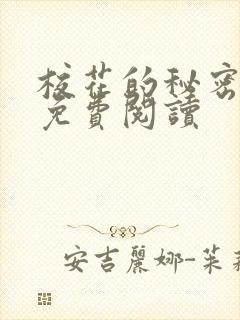 校花的秘密
免費閱讀
安吉麗娜-茱莉